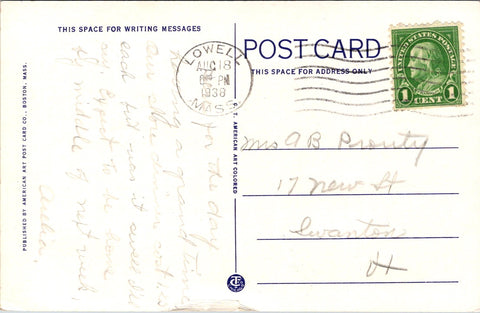 THIS SPACE FOR WRITING MESSAGES
POST CARD
THIS SPACE FOR ADDRESS ONLY
LOWELL
AUG 18
PM
1938
MASS.
UNITED STATES POSTAGE
1 1
CENT
PUBLISHED BY AMERICAN ART POST CARD CO., BOSTON, MASS.
C. T. AMERICAN ART COLORED
for the day
Having a grand time
Our shore dinner cost 1.50
each but was it
expect to be home
by middle of next week,
Mrs A B Prouty
17 New St
Swanton
Vt